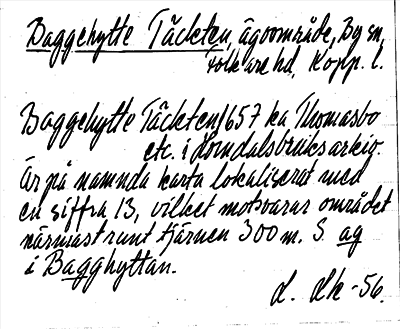 Baggehytte Täckten, ägoområde, By sn,
Folkare hd, Kopp. l.
Baggehytte Täckten 1657 ka Thomasbo
etc. i Horndalsbruks arkiv.
Är på namnda karta lokaliserat med
en siffra 13, vilket motsvarar området
närmast runt tjärnen 300 m. S. ag
i Bagghyttan.
L. Lk -56.